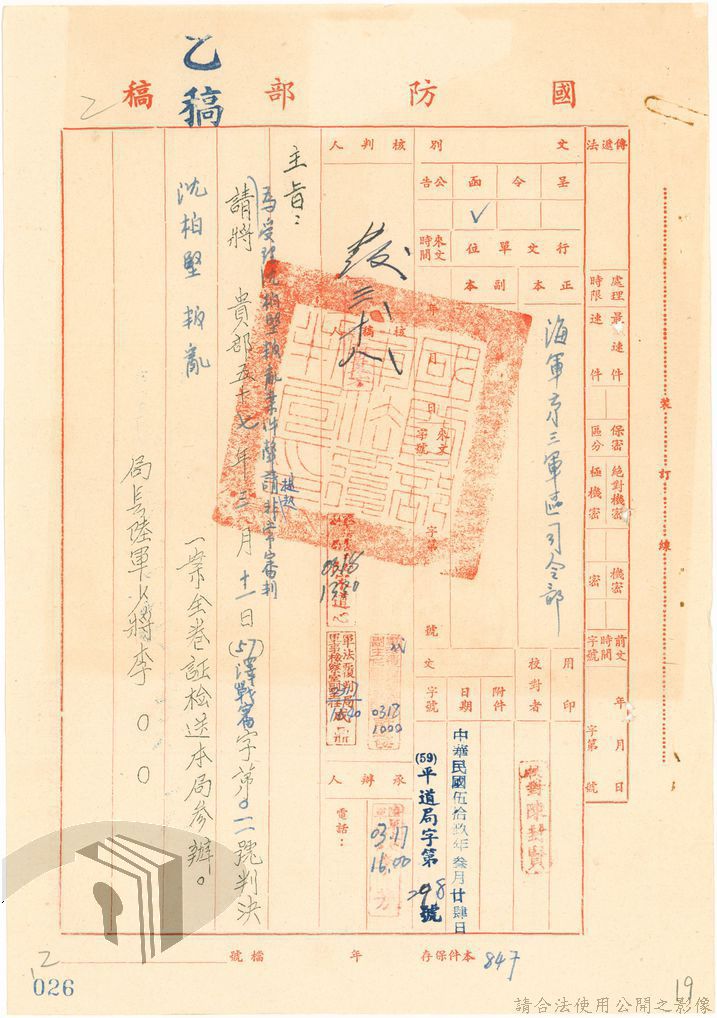 國防部稿
乙稿
傳遞法
處理時限
最速件
速件
保密區分
絕對機密
極機密
機密
密
前文時間字號
年月日
字第 號
文別
呈
令
函
公告
✓
行文單位
來文時間
正本
副本
海軍第三軍區司令部
年月日
來文字號
字第
號
用印
校對者
校對陳封賢
附件
日期
中華民國伍拾玖年叁月廿肆日
文字號
(59)平道局字第298號
核判人
核稿人
三十八
0318
1000
0317
1640
承辦人
電話：
03.17
16.00
主旨：
為受理沈柏堅叛亂案件聲請提起非常審判
請將 貴部五十七年三月十一日(57)澤戰審字第〇一一號判決
沈柏堅叛亂
一案全卷証檢送本局參辦。
局長陸軍少將李〇〇
裝訂線
本件保存
年
檔號
847
乙
026
19
請合法使用公開之影像